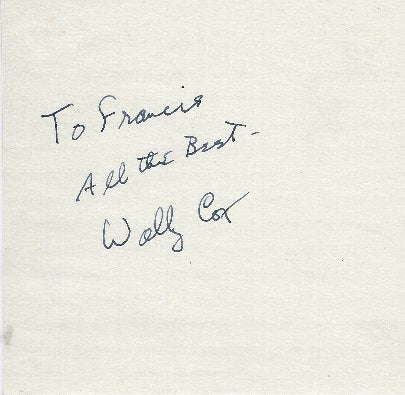 To Francis
All the Best -
Wally Cox